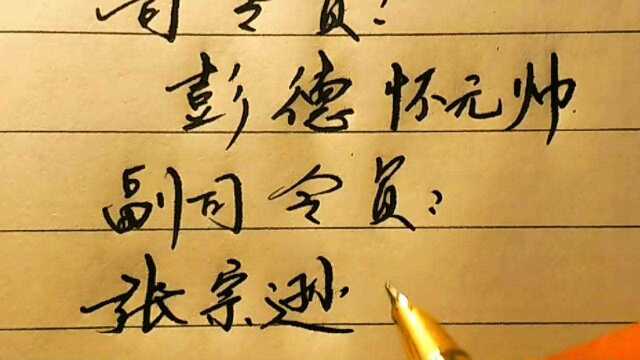 司令员:
彭德怀元帅
副司令员:
张宗逊